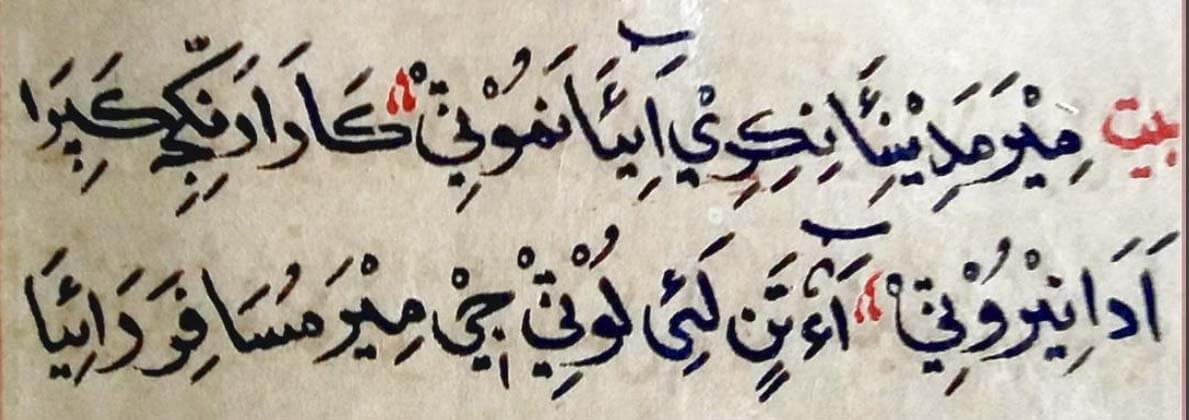 بيت مِيْرَ مَدِيْنِئَا نِكِرِيْ آيِئَا نَمُوْتِيْ كَارَا رَنِّكِجِ كَپِرَا
اَدَا نِيْرُوْتِيْ آءٌ تَنِ لَئِي لُوْتِيْ جِيْ مِيْرَ مُسَافِرَ ڀَائِيَا